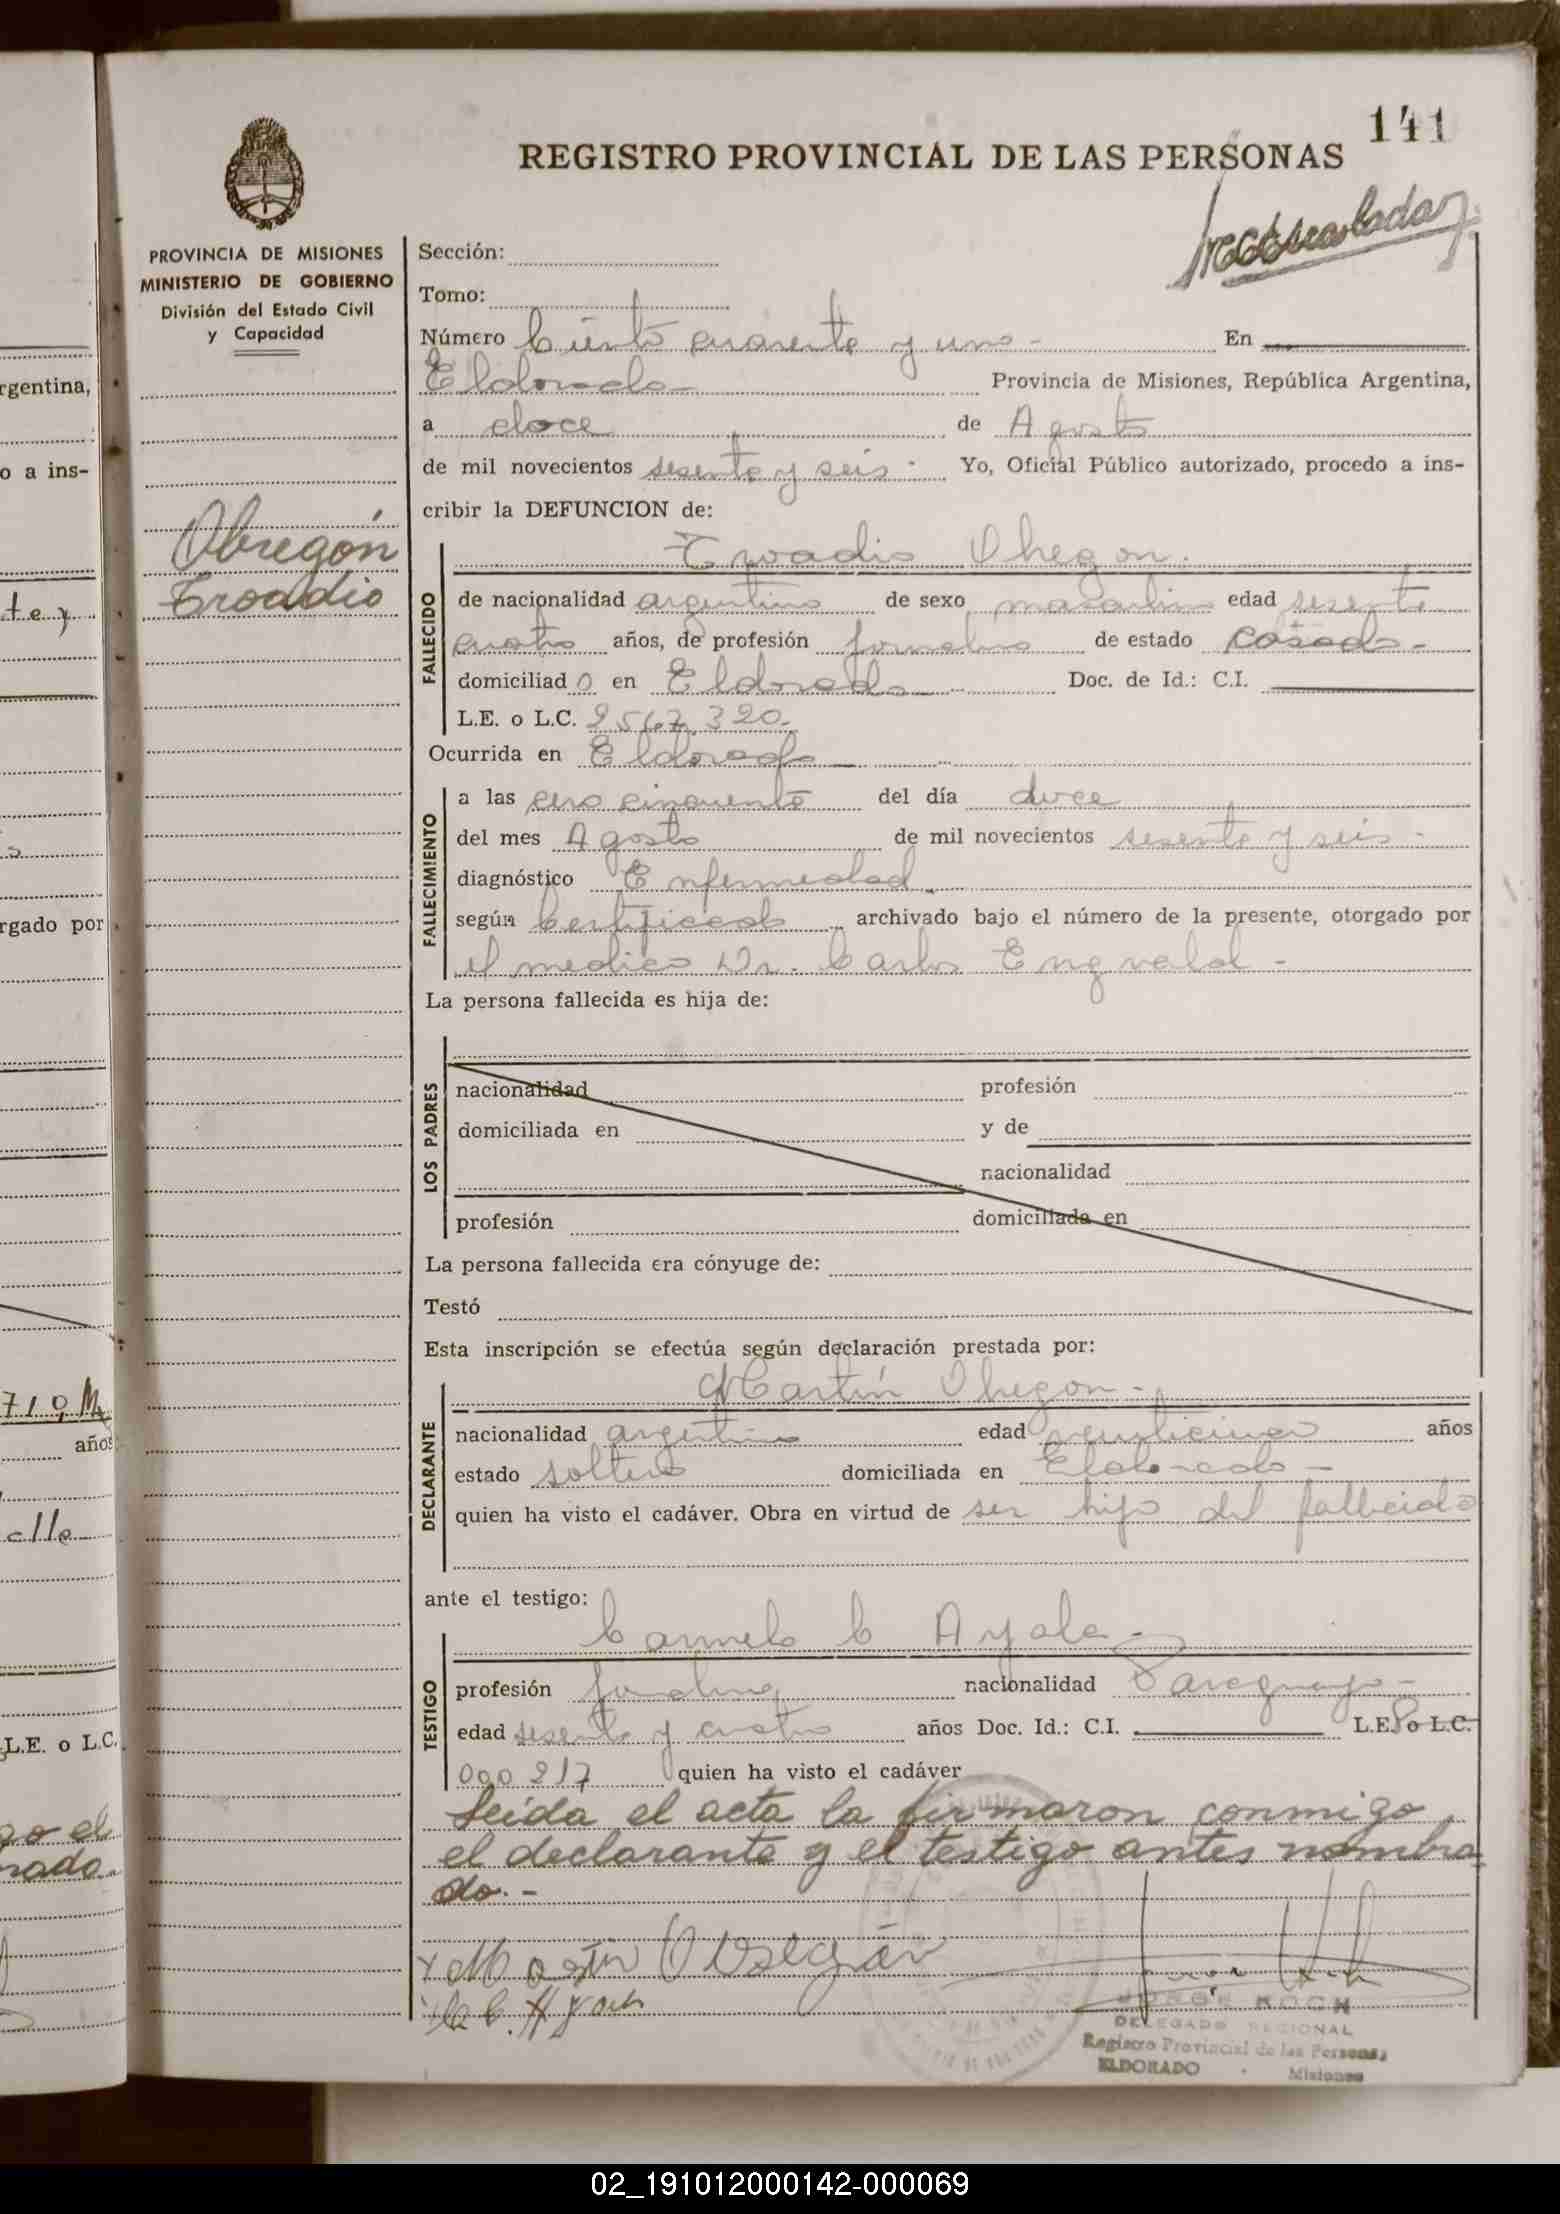 141
REGISTRO PROVINCIAL DE LAS PERSONAS
PROVINCIA DE MISIONES
MINISTERIO DE GOBIERNO
División del Estado Civil
y Capacidad
Obregón
Troadio
Sección:
Tomo:
Número Ciento cuarenta y uno - En
Eldorado - Provincia de Misiones, República Argentina,
a doce de Agosto
de mil novecientos sesenta y seis - Yo, Oficial Público autorizado, procedo a ins-
cribir la DEFUNCION de:
Troadio Obregon.
FALLECIDO
de nacionalidad argentino de sexo masculino edad sesenta
cuatro años, de profesión jornalero de estado casado -
domiciliado en Eldorado - Doc. de Id.: C.I.
L.E. o L.C. 2567.320-
Ocurrida en Eldorado
FALLECIMIENTO
a las cero cincuenta del día doce
del mes Agosto de mil novecientos sesenta y seis -
diagnóstico Enfermedad
según Certificado archivado bajo el número de la presente, otorgado por
el medico Dr. Carlos Engwald -
La persona fallecida es hija de:
LOS PADRES
nacionalidad profesión
domiciliada en y de
nacionalidad
profesión domiciliada en
La persona fallecida era cónyuge de:
Testó
Esta inscripción se efectúa según declaración prestada por:
Martín Obregon -
DECLARANTE
nacionalidad argentino edad veinticinco años
estado soltero domiciliada en Eldorado -
quien ha visto el cadáver. Obra en virtud de ser hijo del fallecido
ante el testigo:
Carmelo C Ayala -
TESTIGO
profesión nacionalidad Paraguayo -
edad sesenta y cuatro años Doc. Id.: C.I. L.E. o L.C.
000217 quien ha visto el cadáver
Leida el acta la firmaron conmigo
el declarante y el testigo antes nombra
do. -
Martin Obregón
C. Ayala
JORGE KOCH
DELEGADO REGIONAL
Registro Provincial de las Personas
ELDORADO - Misiones
rgentina,
o a ins-
te y
rgado por
719 M
años
elle
L.E. o L.C.
go el
nado.
02_191012000142-000069